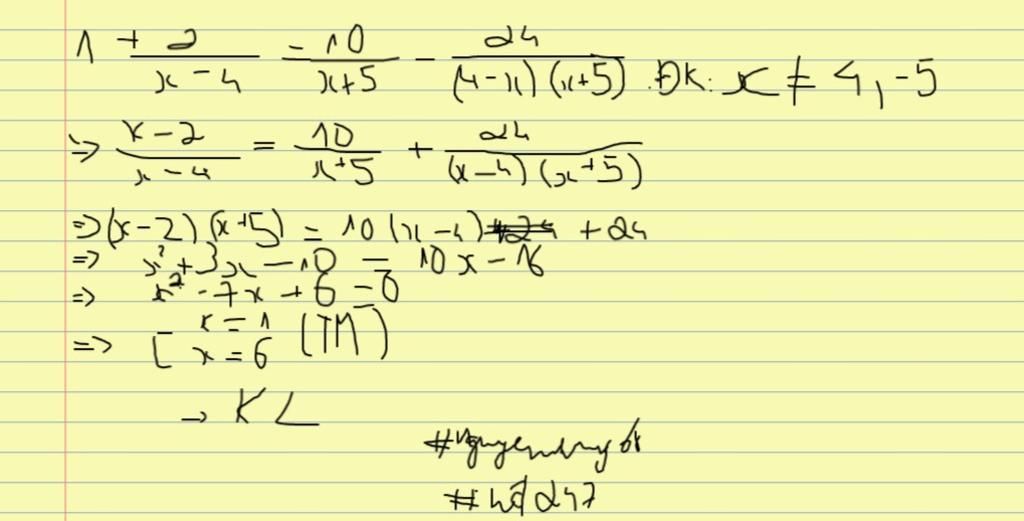 1 + 2/(x-4) = 10/(x+5) - 24/((4-x)(x+5)) . ĐK: x ≠ 4, -5
=> (x-2)/(x-4) = 10/(x+5) + 24/((x-4)(x+5))
=> (x-2)(x+5) = 10(x-4) + 24
=> x² + 3x - 10 = 10x - 16
=> x² - 7x + 6 = 0
=> [ x = 1
x = 6 (TM)
→ KL